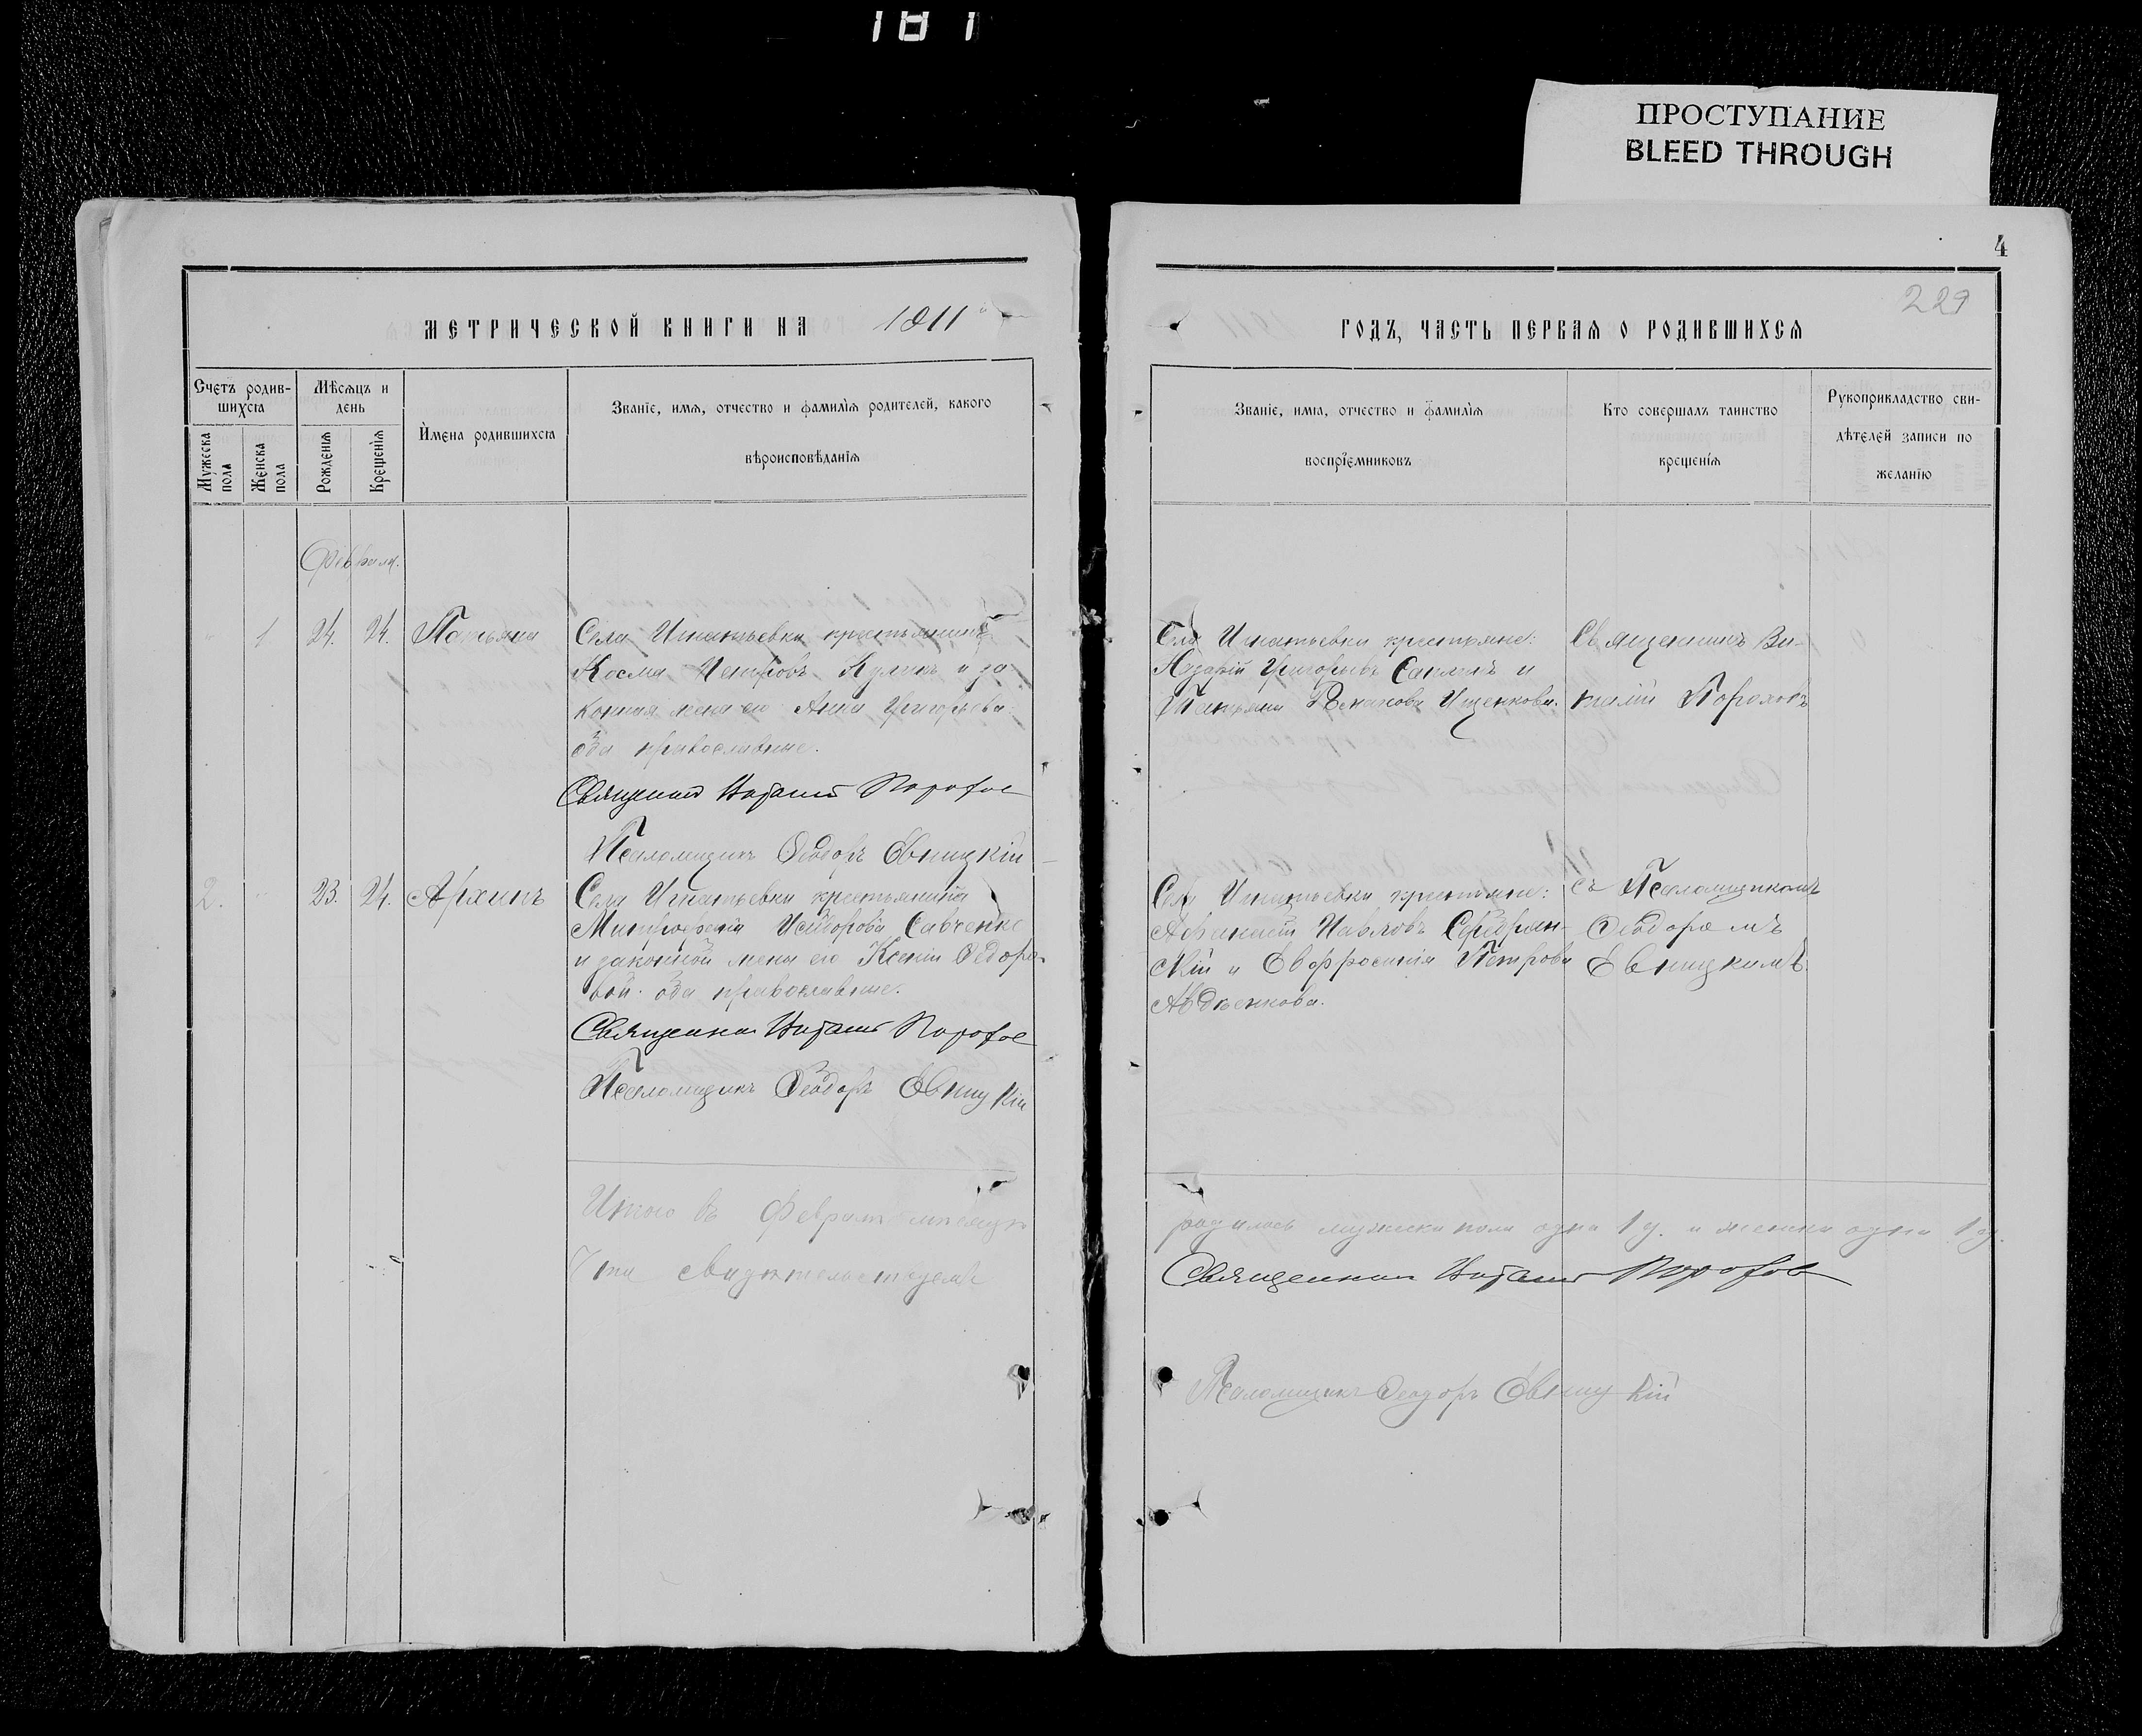 181
ПРОСТУПАНИЕ
BLEED THROUGH
4
229
МЕТРИЧЕСКОЙ КНИГИ НА 1911
ГОДЪ, ЧАСТЬ ПЕРВАЯ О РОДИВШИХСЯ
Счетъ родив-
шихся
Мѣсяцъ и
день
Имена родившихся
Званіе, имя, отчество и фамилія родителей, какого
вѣроисповѣданія
Мужеска
пола
Женска
пола
Рожденія
Крещенія
Званіе, имя, отчество и фамилія
воспріемниковъ
Кто совершалъ таинство
крещенія
Рукоприкладство сви-
дѣтелей записи по
желанію
Февраля.
1 24. 24. Татьяна
Села Игнатьевки крестьянинъ
Косма Петровъ Куликъ и за
конная жена его Анна Григорьева:
оба православные.
Священникъ Виталій Порохов
Псаломщикъ Ѳеодоръ Евницкій
Села Игнатьевки крестьяне:
Григорьевъ и
Татьяна Романова Ищенкова.
Священникъ Ви-
талій Пороховъ
2. 23. 24. Архипъ
Села Игнатьевки крестьянина
Митрофанъ Исидоровъ Савченко
и законной жены его Ксеніи Ѳедоро-
вой. оба православные.
Священникъ Виталій Порохов
Псаломщикъ Ѳеодоръ Евницкій
Села Игнатьевки крестьяне:
Аѳанасій Павловъ Сербрян-
скій и Евфросинія Петрова
Авдѣенкова.
съ Псаломщикомъ
Ѳеодоромъ
Евницкимъ.
Итого въ Февралѣ мѣсяцѣ
родилось мужеска пола одна 1 д. и женска одна 1 д.
Что свидѣтельствуемъ
Священникъ Виталій Порохов
Псаломщикъ Ѳеодоръ Евницкій